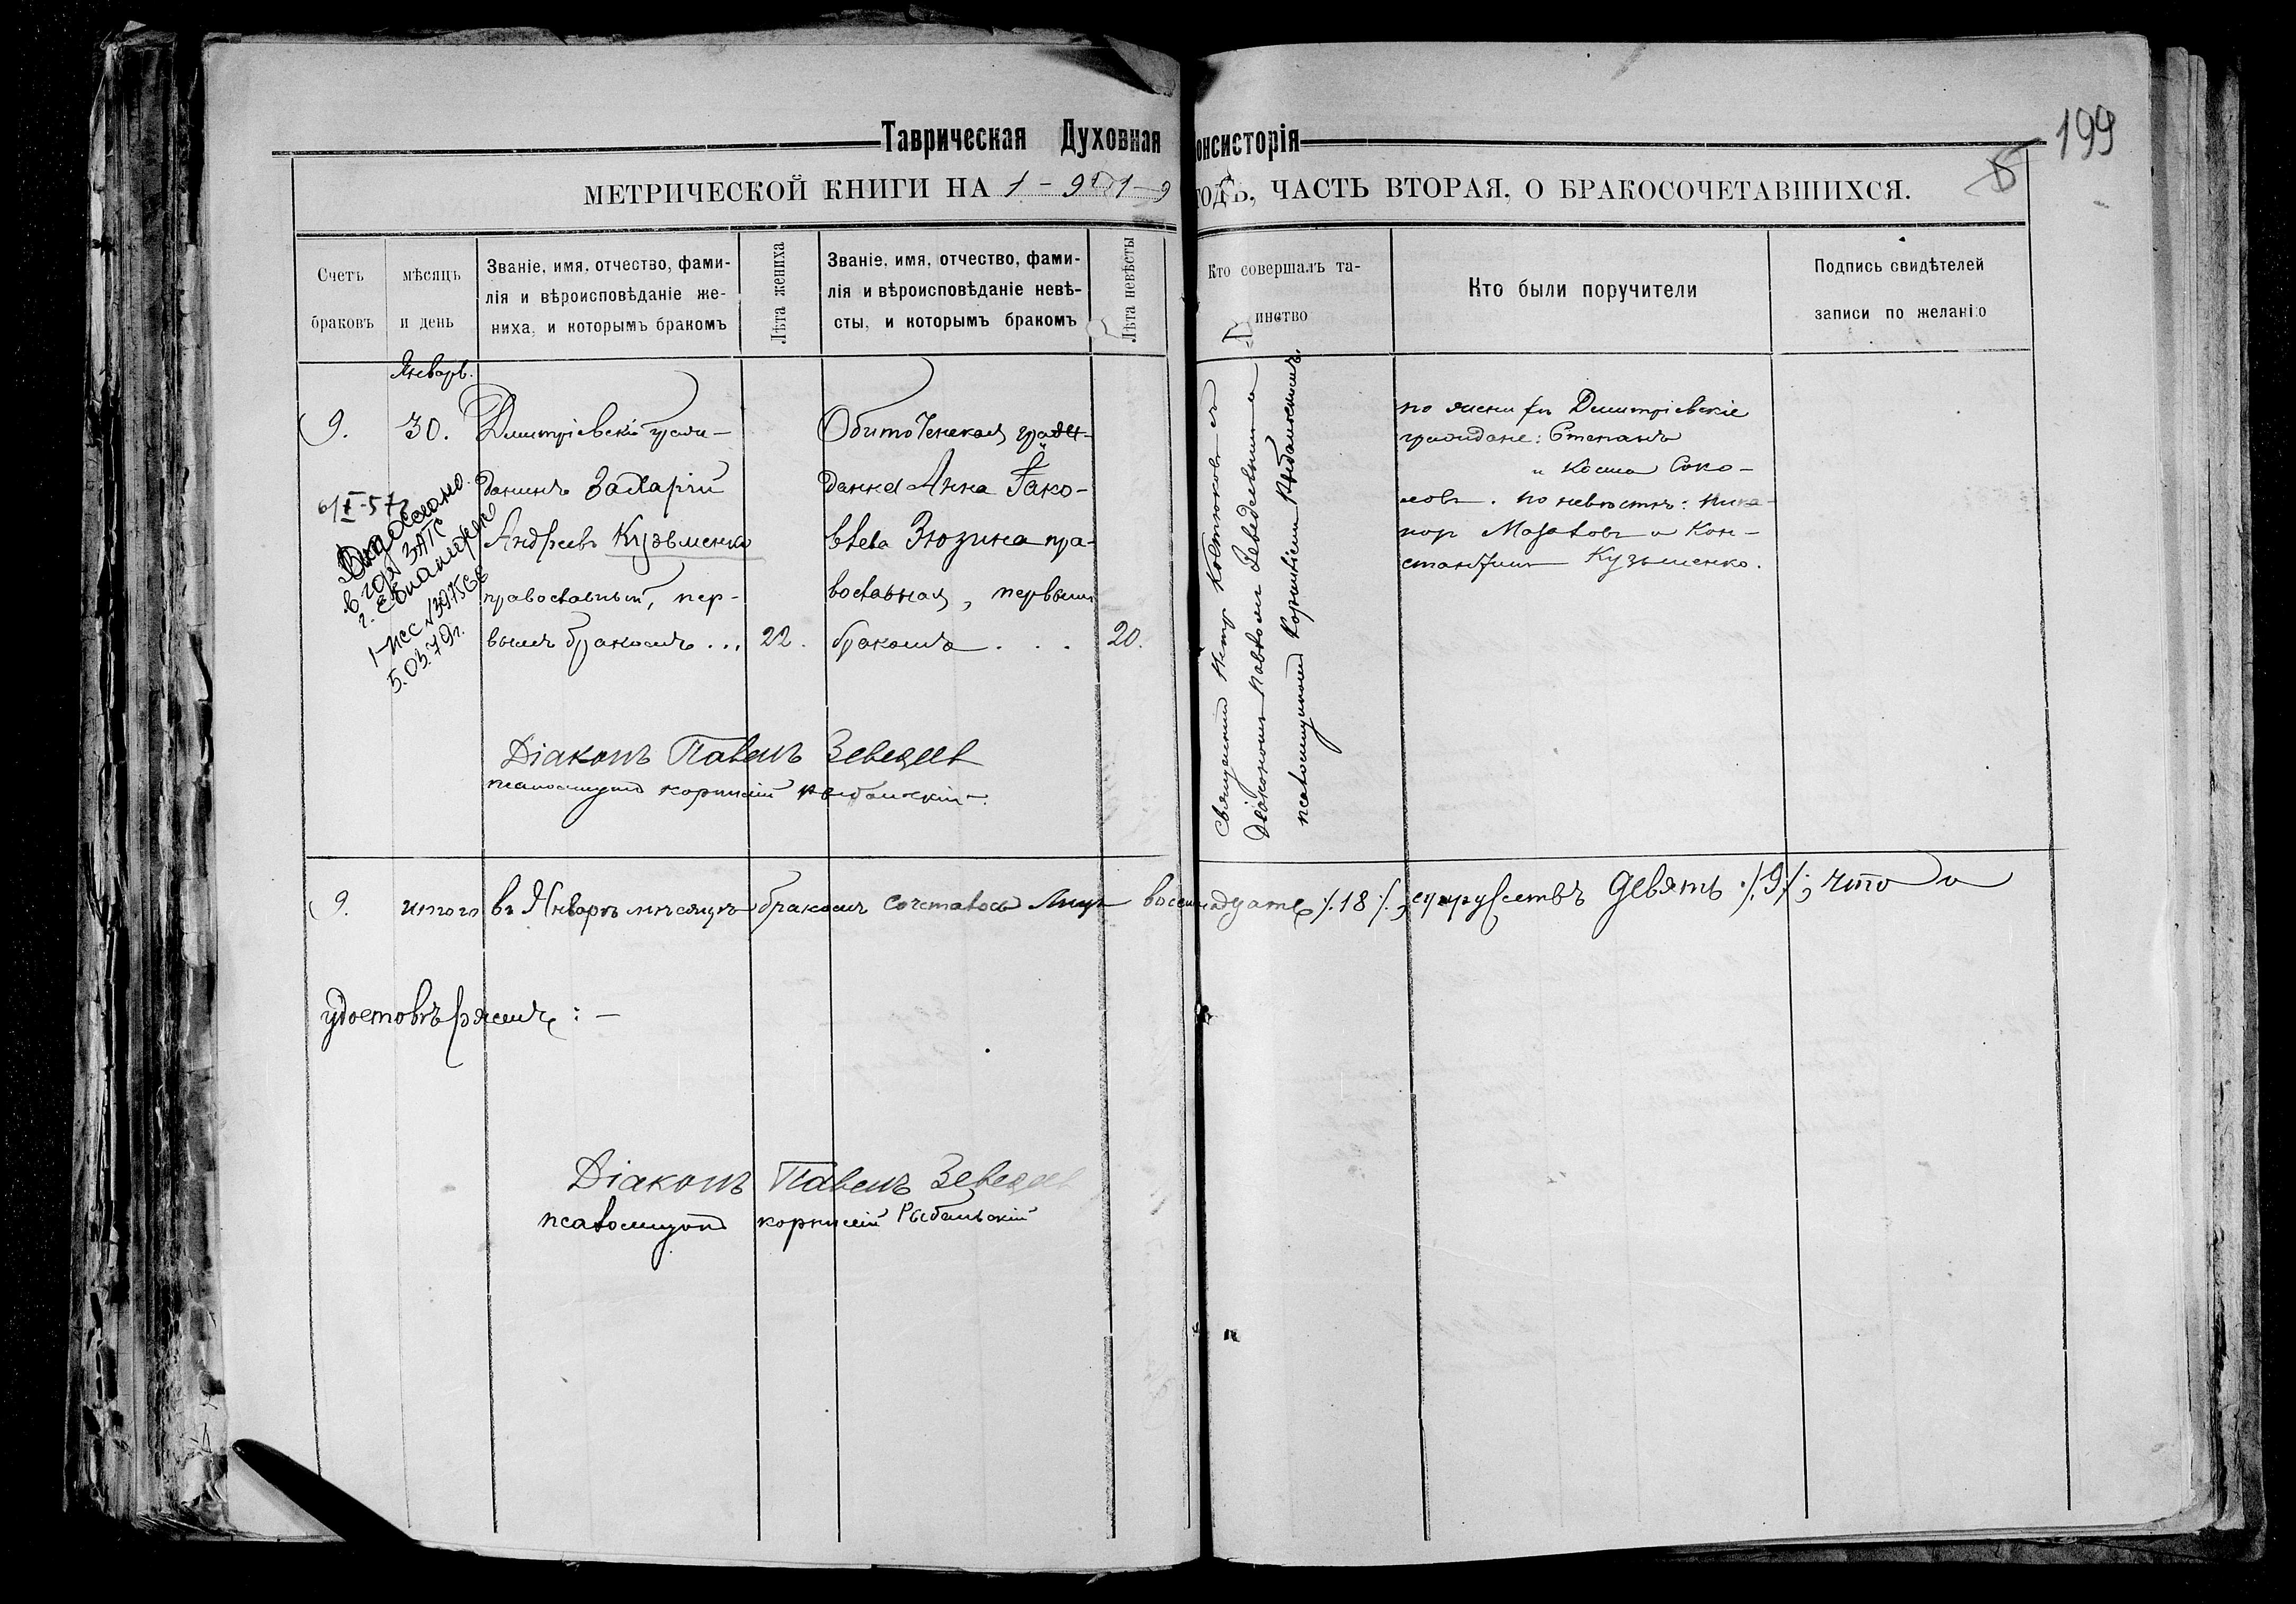 Таврическая Духовная онсисторія
199
МЕТРИЧЕСКОЙ КНИГИ НА 1-919 годъ, ЧАСТЬ ВТОРАЯ, О БРАКОСОЧЕТАВШИХСЯ.
Счетъ
браковъ
мѣсяцъ
и день
Званіе, имя, отчество, фами-
лія и вѣроисповѣданіе же-
ниха, и которымъ бракомъ
Лѣта жениха
Званіе, имя, отчество, фами-
лія и вѣроисповѣданіе невѣ-
сты, и которымъ бракомъ
Лѣта невѣсты
Кто совершалъ та-
инство
Кто были поручители
Подпись свидѣтелей
записи по желанію
Январь.
9.
30.
Димитріевскій граж-
данинъ Захарій
Андреевъ Кузьменко
православный, пер-
вымъ бракомъ ...
22.
Обиточенская граж-
данка Анна Іако-
влева Зюзина пра-
вославная, первымъ
бракомъ . . .
20.
Священникъ Петръ Костюковъ съ
Діакономъ Павломъ Зеведеевымъ и
псаломщикомъ Корниліемъ Рыбальскимъ.
по жениху Димитріевскіе
граждане: Степанъ
и Косма Соко-
ловы. по невѣстѣ: Ника-
нор и Кон-
стантинъ Кузьменко.
6/X-57
Выслано
в гор ЗАГС
г.
I-ЯС № 397568
5.03.79г.
Діаконъ Павелъ Зеведеев
псаломщикъ Корнилій Рыбальскій
9. итого въ Январѣ мѣсяцѣ бракомъ сочеталось лицъ восемнадцать ./.18./., супружествъ девять ./.9./.; что и
удостовѣряемъ: —
Діаконъ Павелъ Зеведеев
псаломщикъ Корнилій Рыбальскій